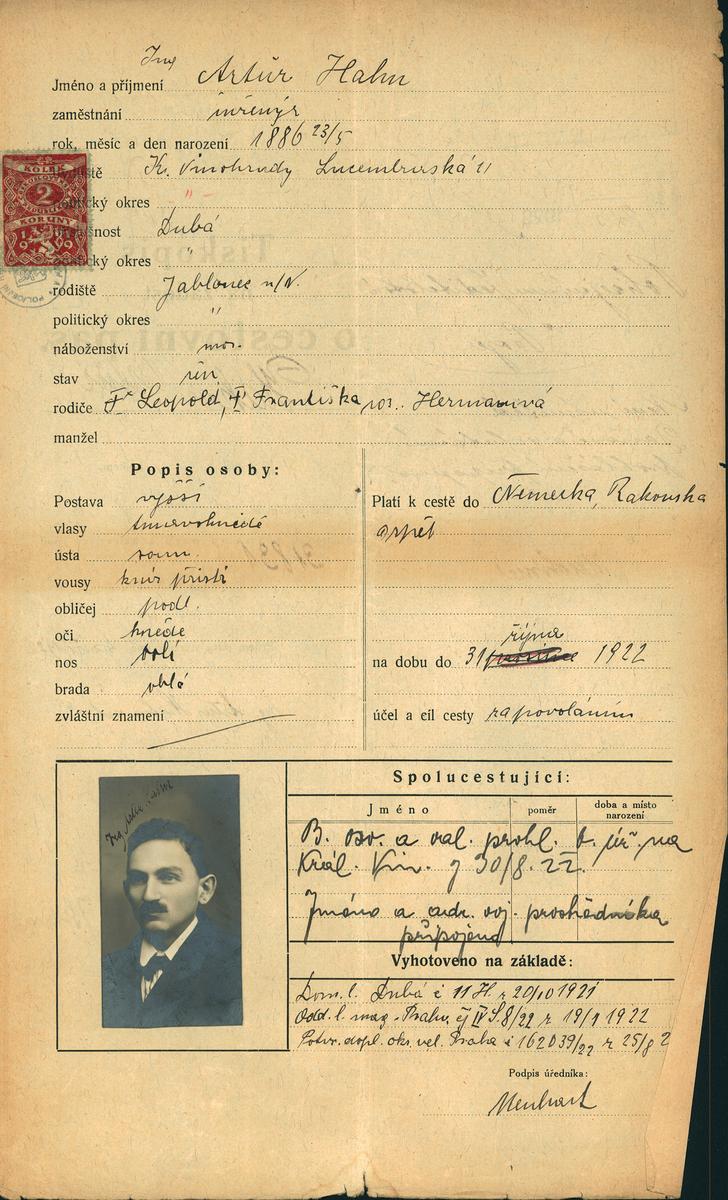 Ing
Jméno a příjmení Artur Hahn
zaměstnání inženýr
rok, měsíc a den narození 1886 23/5
Kr. Vinohrady Lucemburská 11
politický okres "
Dubá
politický okres "
rodiště Jablonec n/N.
politický okres "
náboženství mos.
stav žen.
rodiče Leopold, Františka roz. Hermanová
manžel
Popis osoby:
Postava vyšší
vlasy tmavohnědé
ústa soum.
vousy knír přistř
obličej podl.
oči hnědé
nos
brada oblá
zvláštní znamení
Platí k cestě do Německa, Rakouska
a zpět
října
na dobu do 31 1922
účel a cíl cesty za povoláním
KOLEK
2
KORUNY
1919
Spolucestující:
Jméno poměr doba a místo
narození
B. osv. a val. prohl. b. úř. na
Král. Vin. z 30/8. 22.
Jméno a adr. voj. prostředníka
připojena
Vyhotoveno na základě:
Dom. l. Dubá č 11 H. z 20/10 1921
Odd. l. mag. Prahy čj IV S. 8/22 z 19/1 1922
Potvr. dopl. okr. vel. Praha č 162039/22 z 25/8 2
Podpis úředníka: